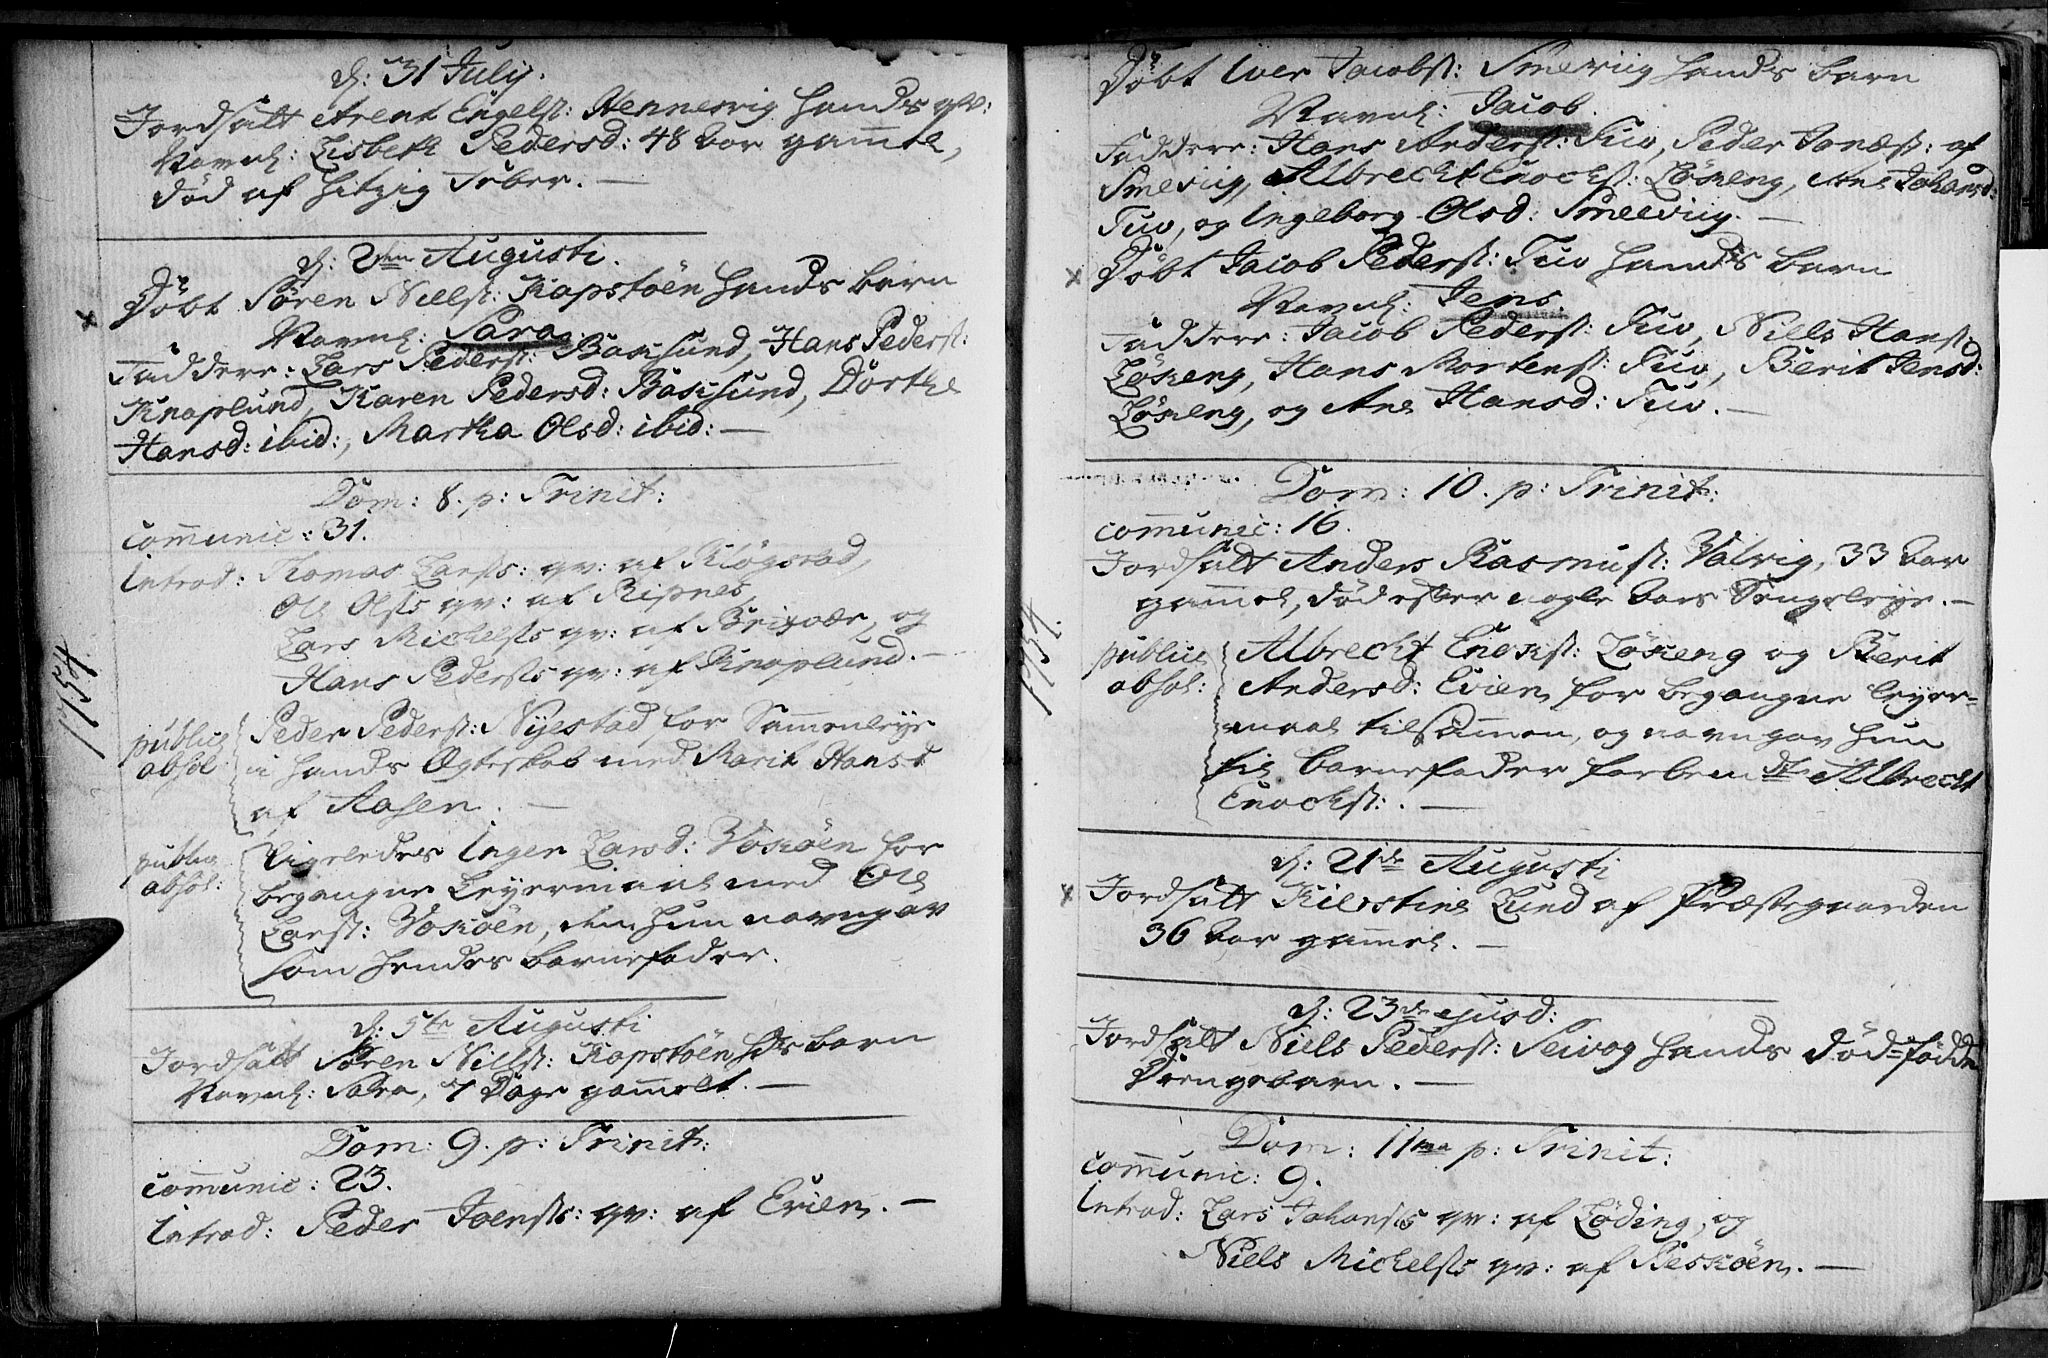 d: 31 July.
Jordsatt Arent Engelst: Hennesvig hands qv:
Navnl: Lisbeth Pedersd: 48 Aar gamel,
död af hitzig Feber. —
d: 2den Augusti.
Döbt Sören Nielst: Kopstöen hands barn
Navnl: Sara.
Faddere: Lars Pederst: Baksund, Hans Pederst:
Knaplund, Karen Pedersd: Baksund, Dorthe
Hansd: ibid:, Martha Olsd: ibid: —
Dom: 8. p: Trinit:
comunic: 31.
Introd: Tomas Larsts: qv: af Klögstad,
Ole Olsts qv: af Ripnes,
Lars Michelsts qv: af Brixvær, og
Hans Pedersts qv: af Knaplund. —
1754.
public absol:
Peder Pederst: Nyestad for Sammenleye
i hands Ægteskab med Marit Hansd
af Aasen. —
public absol:
Ligeledes Inger Larsd: Voxöen for
begangne Leyermaal med Ole
Larst: Voxöen, den hun navngav
som hendes barnefader.
d: 5te Augusti
Jordsatt Sören Nielst: Kopstöen hds barn
Navnl: Sara, 7 Dage gammelt. —
Dom: 9. p: Trinit:
comunic: 23.
Introd: Peder Joensts: qv: af Evien. —
Döbt Iver Jacobst: Smevig hands barn
Navnl: Jacob.
Faddere: Hans Anderst: Tuv, Peder Jonæst: af
Smevig, Albrecht Enochst: Löxeng, Ane Johansd:
Tuv, og Ingeborg Olsd: Smeevig. —
Döbt Jacob Pederst: Tuv hands barn
Navnl: Jens.
Faddere: Jacob Pederst: Tuv, Niels Hanst:
Löxeng, Hans Mortenst: Tuv, Berit Jensd:
Löxeng, og Ane Hansd: Tuv. —
Dom: 10. p: Trinit:
comunic: 16.
Jordsatt Anders Rasmust: Valvig, 33 Aar
gammel, död efter nogle Aars Sengeleye. —
1754.
public absol:
Albrecht Enoxst: Löxeng og Berit
Andersd: Evien for begangne leyer-
maal tilsamen, og navngav hun
til barnefader forbemdte Albrecht
Enochst:. —
d: 21de Augusti
Jordsatt Kierstine Lund af Præstegaarden
36 Aar gammel. —
d: 23de ejusd:
Jordsatt Niels Pederst: Seivog hands död-födde
Drengebarn. —
Dom: 11ma p: Trinit:
comunic: 9.
Introd: Lars Johansts qv: af Löding, og
Niels Michelsts qv: af Besköen. —